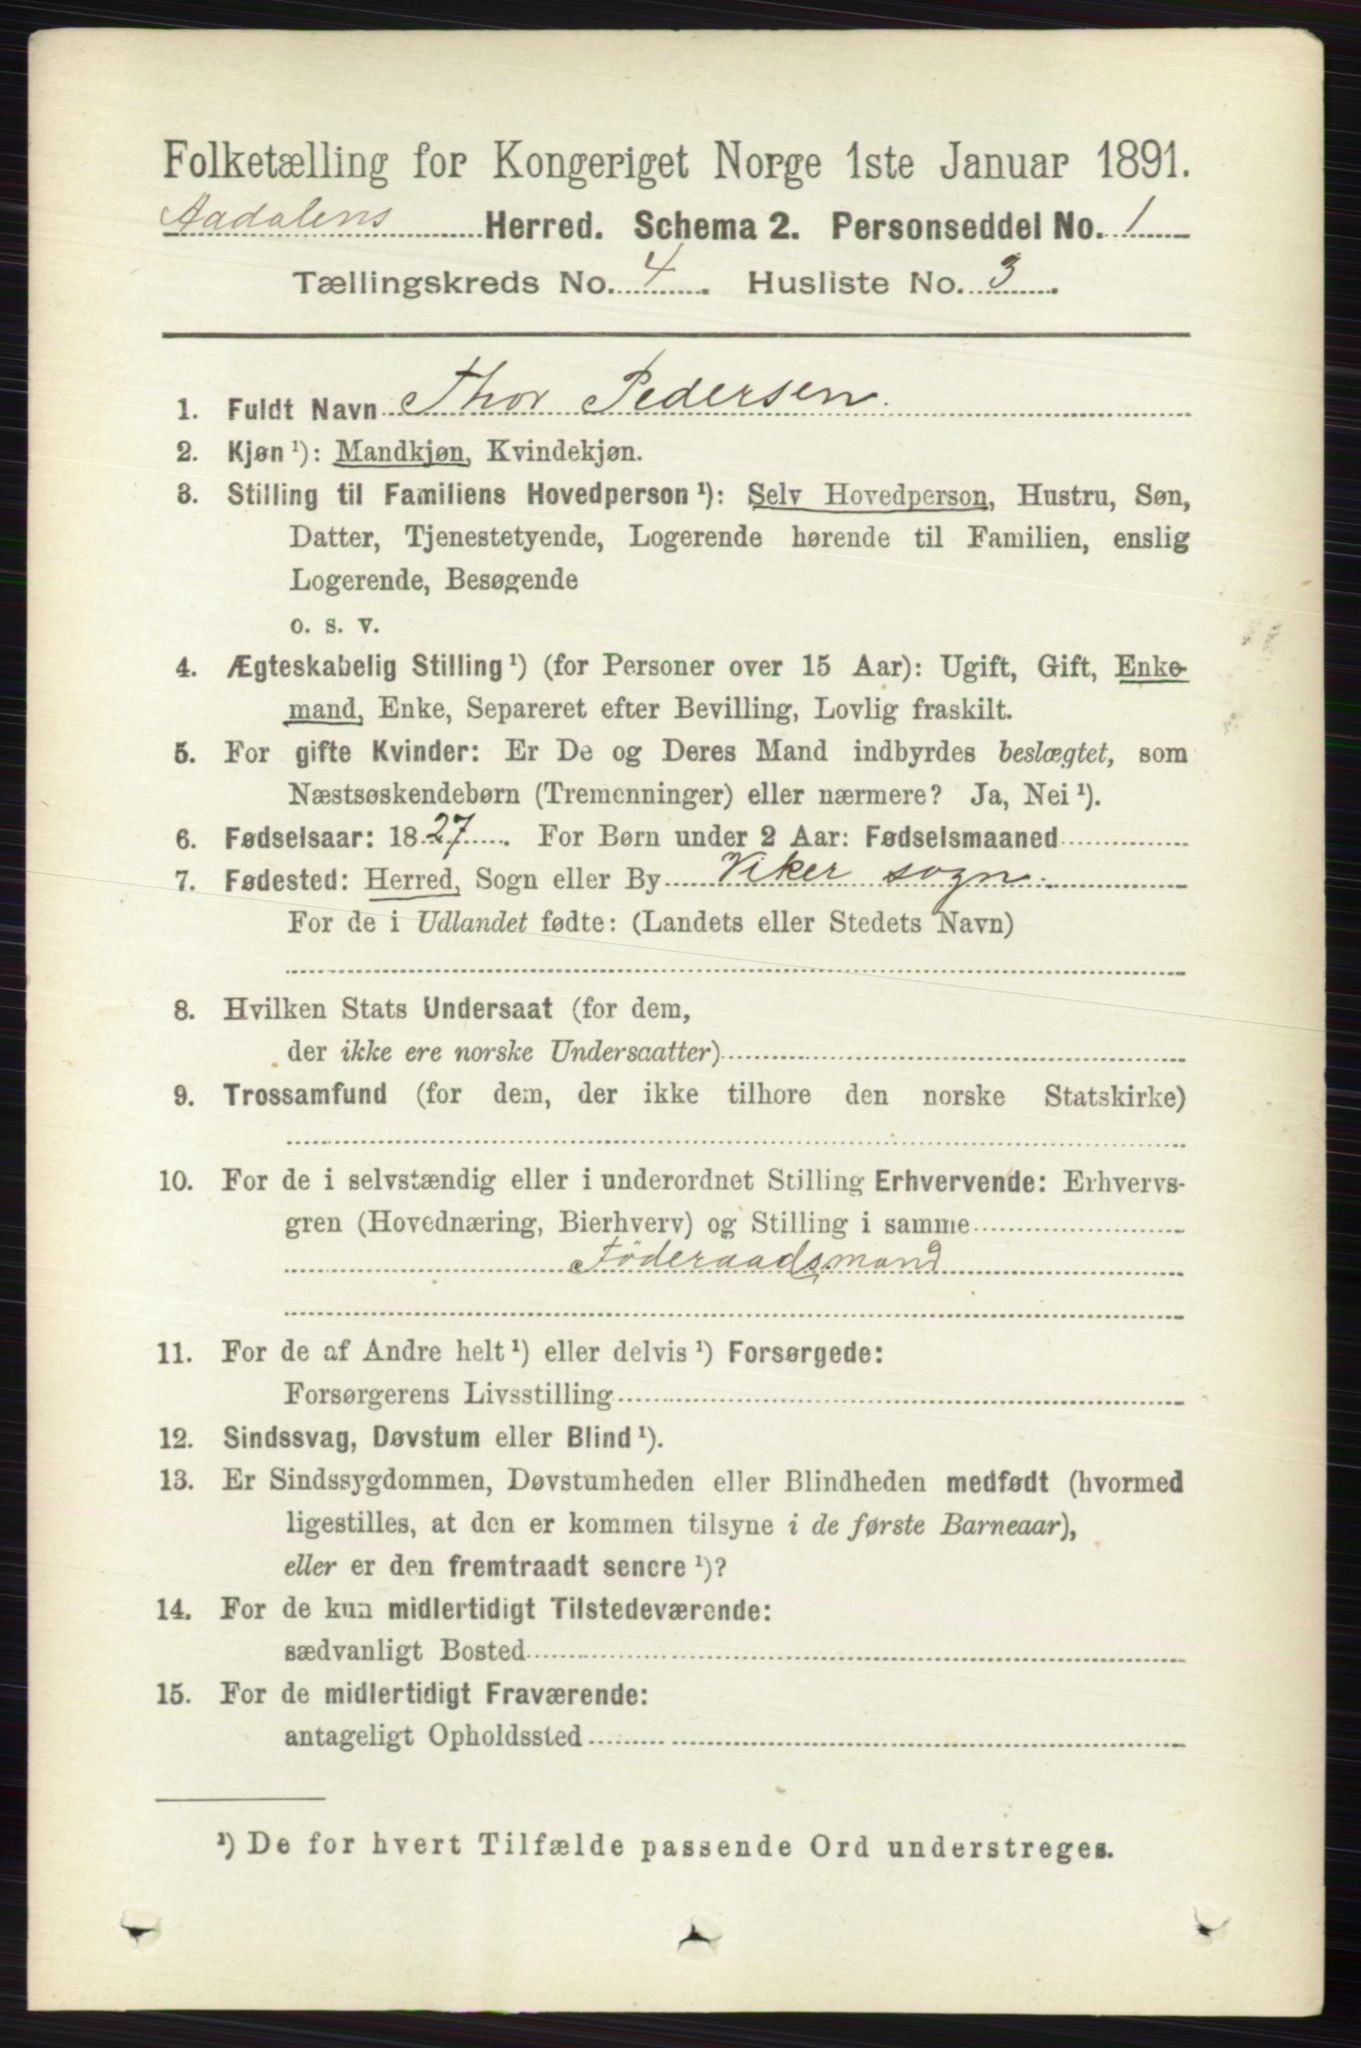 Folketælling for Kongeriget Norge 1ste Januar 1891.
Aadalens Herred. Schema 2. Personseddel No. 1
Tællingskreds No. 4. Husliste No. 3.
1. Fuldt Navn Thor Pedersen.
2. Kjøn ¹): Mandkjøn, Kvindekjøn.
3. Stilling til Familiens Hovedperson ¹): Selv Hovedperson, Hustru, Søn,
Datter, Tjenestetyende, Logerende hørende til Familien, enslig
Logerende, Besøgende
o. s. v.
4. Ægteskabelig Stilling ¹) (for Personer over 15 Aar): Ugift, Gift, Enke-
mand, Enke, Separeret efter Bevilling, Lovlig fraskilt.
5. For gifte Kvinder: Er De og Deres Mand indbyrdes beslægtet, som
Næstsøskendebørn (Tremenninger) eller nærmere? Ja, Nei ¹).
6. Fødselsaar: 1827. For Børn under 2 Aar: Fødselsmaaned
7. Fødested: Herred, Sogn eller By Viker sogn.
For de i Udlandet fødte: (Landets eller Stedets Navn)
8. Hvilken Stats Undersaat (for dem,
der ikke ere norske Undersaatter)
9. Trossamfund (for dem, der ikke tilhøre den norske Statskirke)
10. For de i selvstændig eller i underordnet Stilling Erhvervende: Erhvervs-
gren (Hovednæring, Bierhverv) og Stilling i samme
Föderaadsmand
11. For de af Andre helt ¹) eller delvis ¹) Forsørgede:
Forsørgerens Livsstilling
12. Sindssvag, Døvstum eller Blind ¹).
13. Er Sindssygdommen, Døvstumheden eller Blindheden medfødt (hvormed
ligestilles, at den er kommen tilsyne i de første Barneaar),
eller er den fremtraadt senere ¹)?
14. For de kun midlertidigt Tilstedeværende:
sædvanligt Bosted
15. For de midlertidigt Fraværende:
antageligt Opholdssted
¹) De for hvert Tilfælde passende Ord understreges.